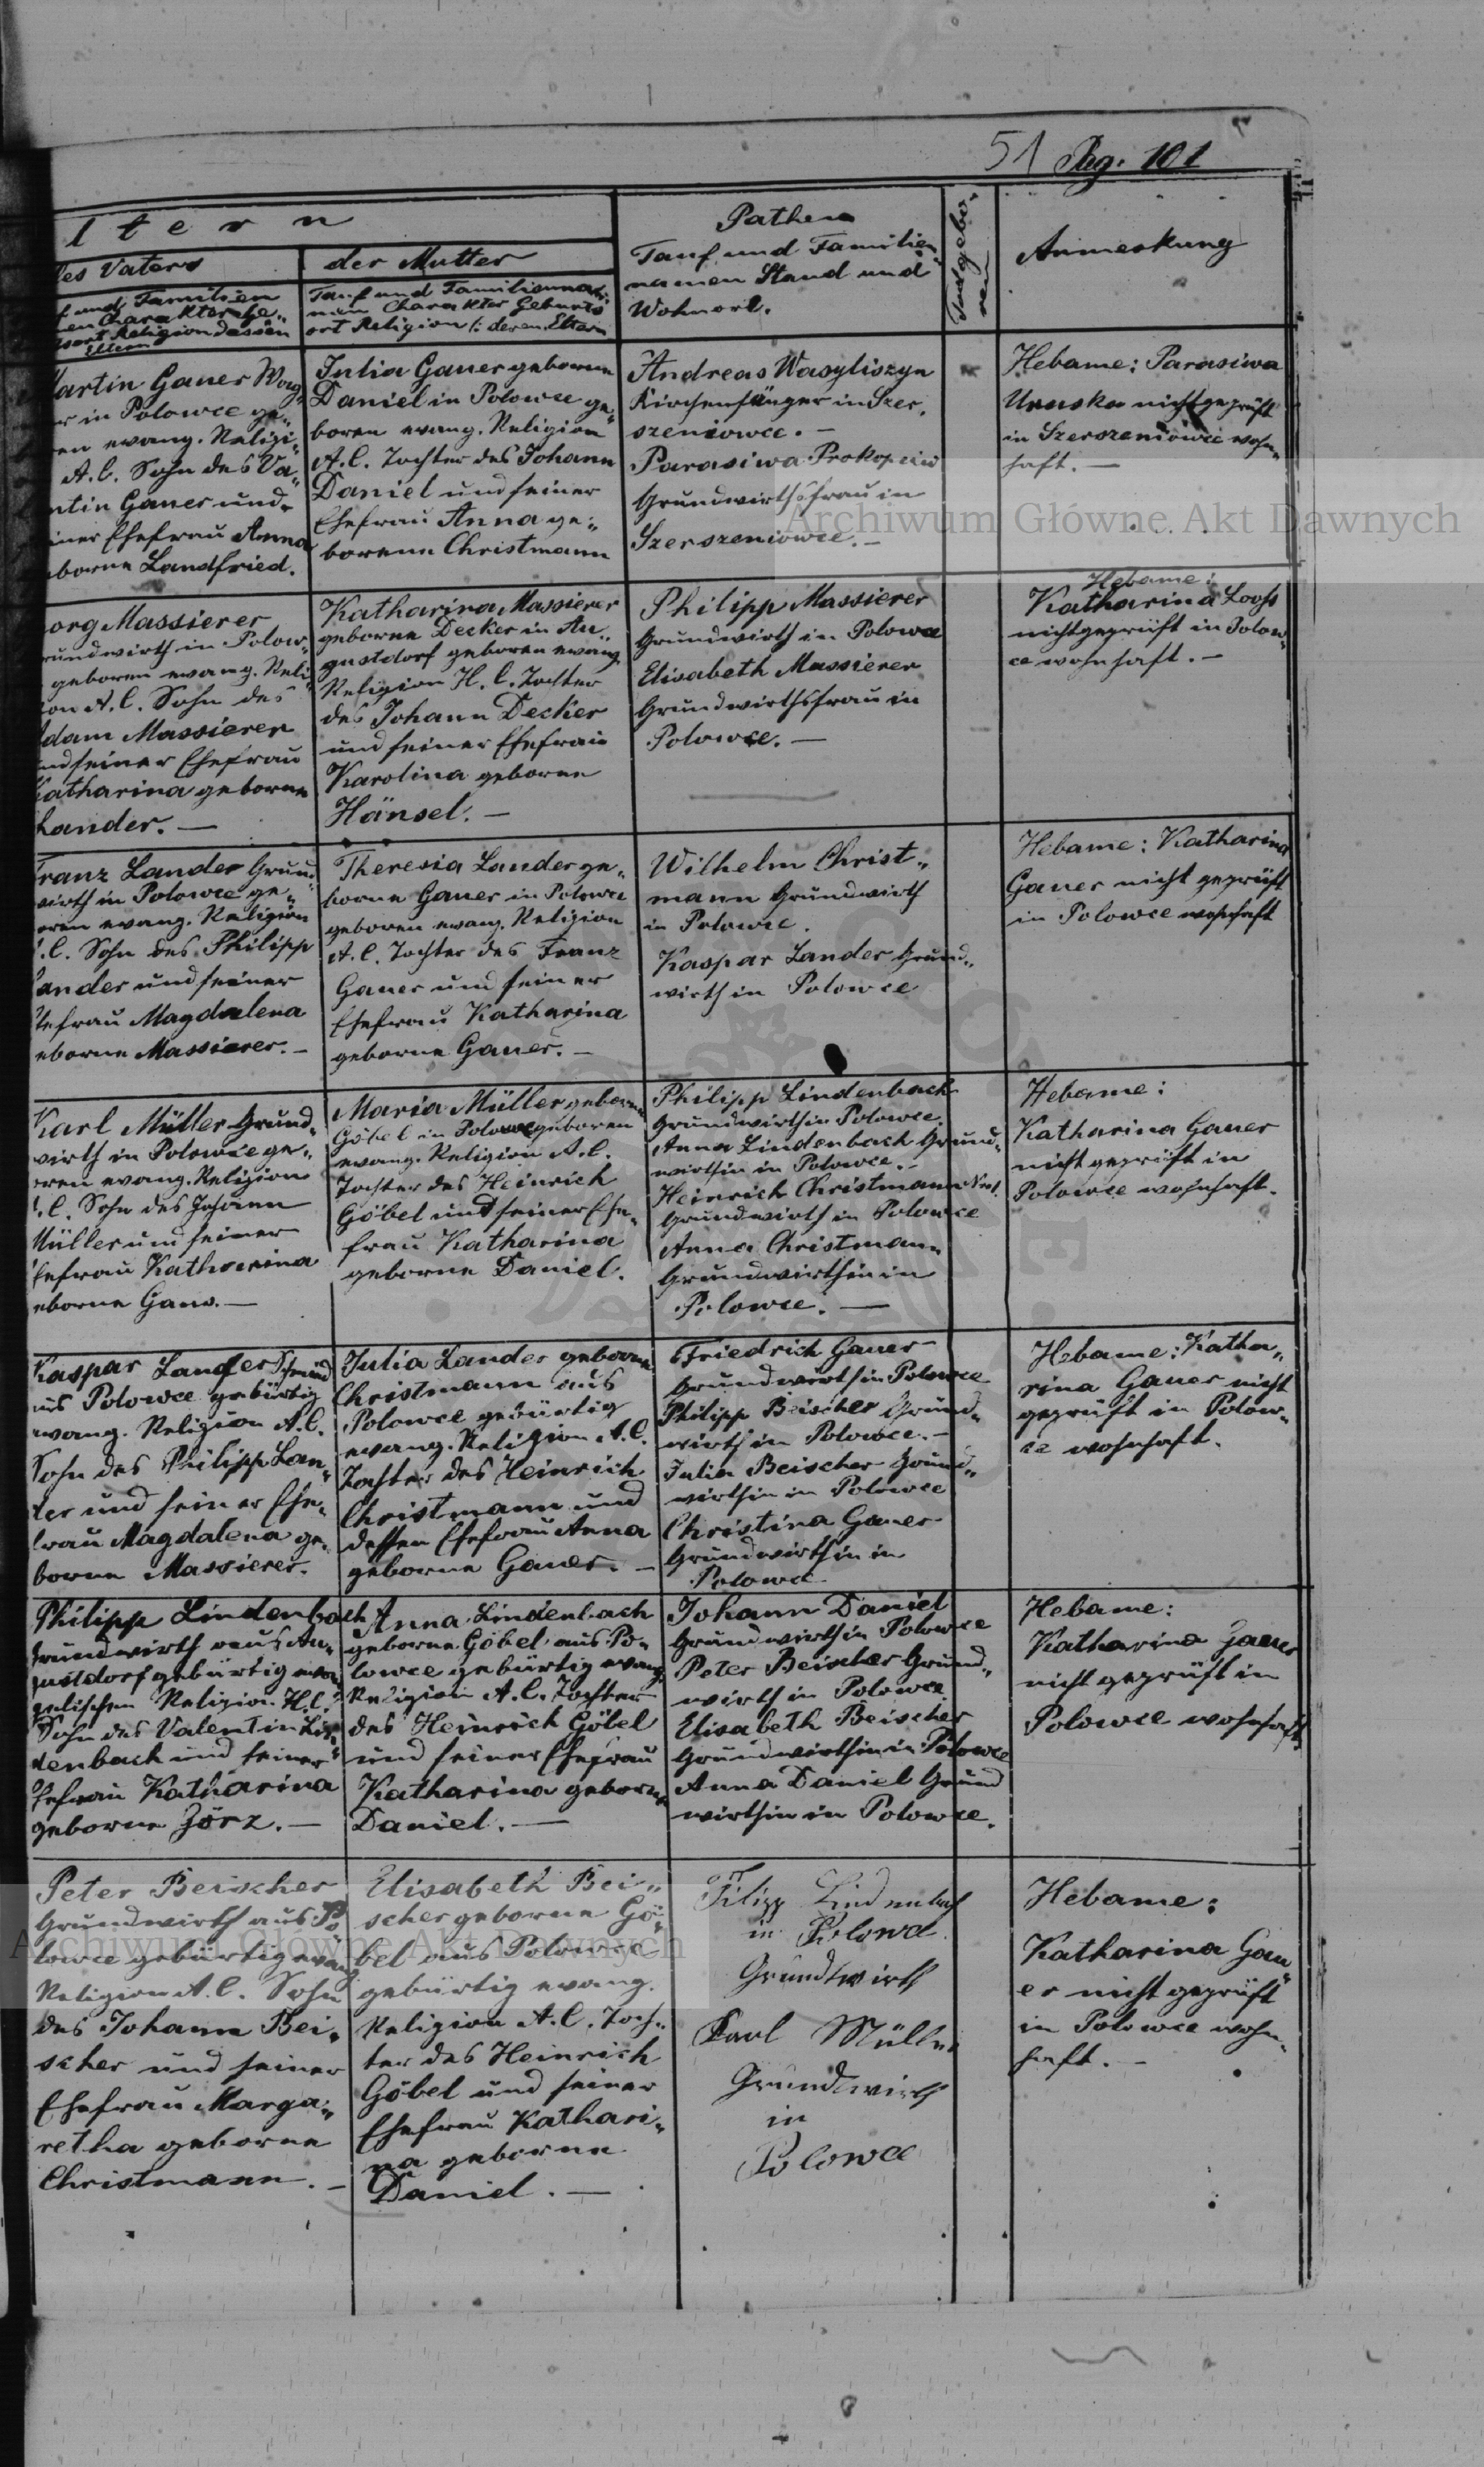 51 Pag. 101
ltern
des Vaters
f und Familien
en Charakter Ge„
sort Religion dessen
Eltern
der Mutter
Tauf und Familienna„
men Charakter Geburts
ort Religion /: deren Eltern
Pathen
Tauf und Familien
namen Stand und
Wohnort.
Todtgebo„
ren
Anmerkung
artin Gauer Wag„
er in Polowce ge„
en evang. Religi„
A.C. Sohn des Va„
ntin Gauer und
einer Ehefrau Anna
eborne Landfried.
Julia Gauer geborene
Daniel in Polowce ge„
boren evang. Religion
A.C. Tochter des Johann
Daniel und seiner
Ehefrau Anna ge„
borene Christmann
Andreas Wasyliszyn
Kirchensänger in Szer„
szeniowce. –
Parasiwa Prokopciw
Grundwirthsfrau in
Szerszeniowce. –
Hebame: Parasiwa
Uruska nicht geprüft
in Szerszeniowce wohn„
haft. –
eorg Massierer
rundwirth in Polow„
geboren evang. Reli„
ion A.C. Sohn des
dam Massierer
und seiner Ehefrau
Katharina geborne
Lander. –
Katharina Massierer
geborne Decker in Au„
gustdorf geboren evang
Religion H.C. Tochter
des Johann Decker
und seiner Ehefrau
Karolina geborne
Hänsel. –
Philipp Massierer
Grundwirth in Polowce
Elisabeth Massierer
Grundwirthsfrau in
Polowce. –
Hebame:
Katharina Loohs
nichtgeprüft in Polow„
ce wohnhaft. –
Franz Lander Grund„
wirth in Polowce ge„
oren evang. Religion
.C. Sohn des Philipp
Lander und seiner
hefrau Magdalena
eborne Massierer. –
Theresia Lander ge„
borne Gauer in Polowce
geboren evang. Religion
A.C. Tochter des Franz
Gauer und seiner
Ehefrau Katharina
geborne Gauer. –
Wilhelm Christ„
mann Grundwirth
in Polowce.
Kaspar Lander Grund„
wirth in Polowce
Hebame: Katharina
Gauer nicht geprüft
in Polowce wohnhaft
Karl Müller Grund„
wirth in Polowce ge„
oren evang. Religion
.C. Sohn des Johann
Müller und seiner
Ehefrau Katharina
eborne Gans. –
Maria Müller geborne
Göbel in Polowce geboren
evang. Religion A.C.
Tochter des Heinrich
Göbel und seiner Ehe„
frau Katharina
geborne Daniel.
Philipp Lindenbach
Grundwirth in Polowce
Anna Lindenbach Grund„
wirthin in Polowce. –
Heinrich Christmann
Grundwirth in Polowce
Anna Christmann
Grundwirthin in
Polowce. –
Hebame:
Katharina Gauer
nicht geprüft in
Polowce wohnhaft.
Kaspar Lander Schmied
aus Polowce gebürtig
evang. Religion A.C.
Sohn des Philipp Lan„
der und seiner Ehe„
frau Magdalena ge„
borne Massierer.
Julia Lander geborne
Christmann aus
Polowce gebürtig
evang. Religion A.C.
Tochter des Heinrich
Christmann und
dessen Ehefrau Anna
geborne Gauer. –
Friedrich Gauer
Grundwirth in Polowce
Philipp Beischer Grund„
wirth in Polowce. –
Julia Beischer Grund„
wirthin in Polowce
Christina Gauer
Grundwirthin in
Polowce
Hebame: Katha„
rina Gauer nicht
geprüft in Polow„
ce wohnhaft.
Philipp Lindenbach
Grundwirth aus Au„
gustdorf gebürtig evan
gelischen Religion H.C.
Sohn des Valentin Lin„
denbach und seiner
Ehefrau Katharina
geborne Zörz. –
Anna Lindenbach
geborne Göbel aus Po„
lowce gebürtig evang.
Religion A.C. Tochter
des Heinrich Göbel
und seiner Ehefrau
Katharina geborne
Daniel. –
Johann Daniel
Grundwirth in Polowce
Peter Beischer Grund„
wirth in Polowce
Elisabeth Beischer
Grundwirthin in Polowce
Anna Daniel Grund
wirthin in Polowce.
Hebame:
Katharina Gauer
nicht geprüft in
Polowce wohnhaft.
Peter Beischer
Grundwirth aus Po
lowce gebürtig evang
Religion A.C. Sohn
des Johann Bei„
scher und seiner
Ehefrau Marga„
retha geborne
Christmann. –
Elisabeth Bei„
scher geborne Gö„
bel aus Polowce
gebürtig evang.
Religion A.C. Toch„
ter des Heinrich
Göbel und seiner
Ehefrau Kathari„
na geborne
Daniel. –
Filipp Lindenbach
in Polowce
Grundwirth
Karl Müller
Grundwirth
in
Polowce
Hebame:
Katharina Gau„
er nicht geprüft
in Polowce wohn„
haft. –
Archiwum Główne Akt Dawnych
Archiwum Główne Akt Dawnych